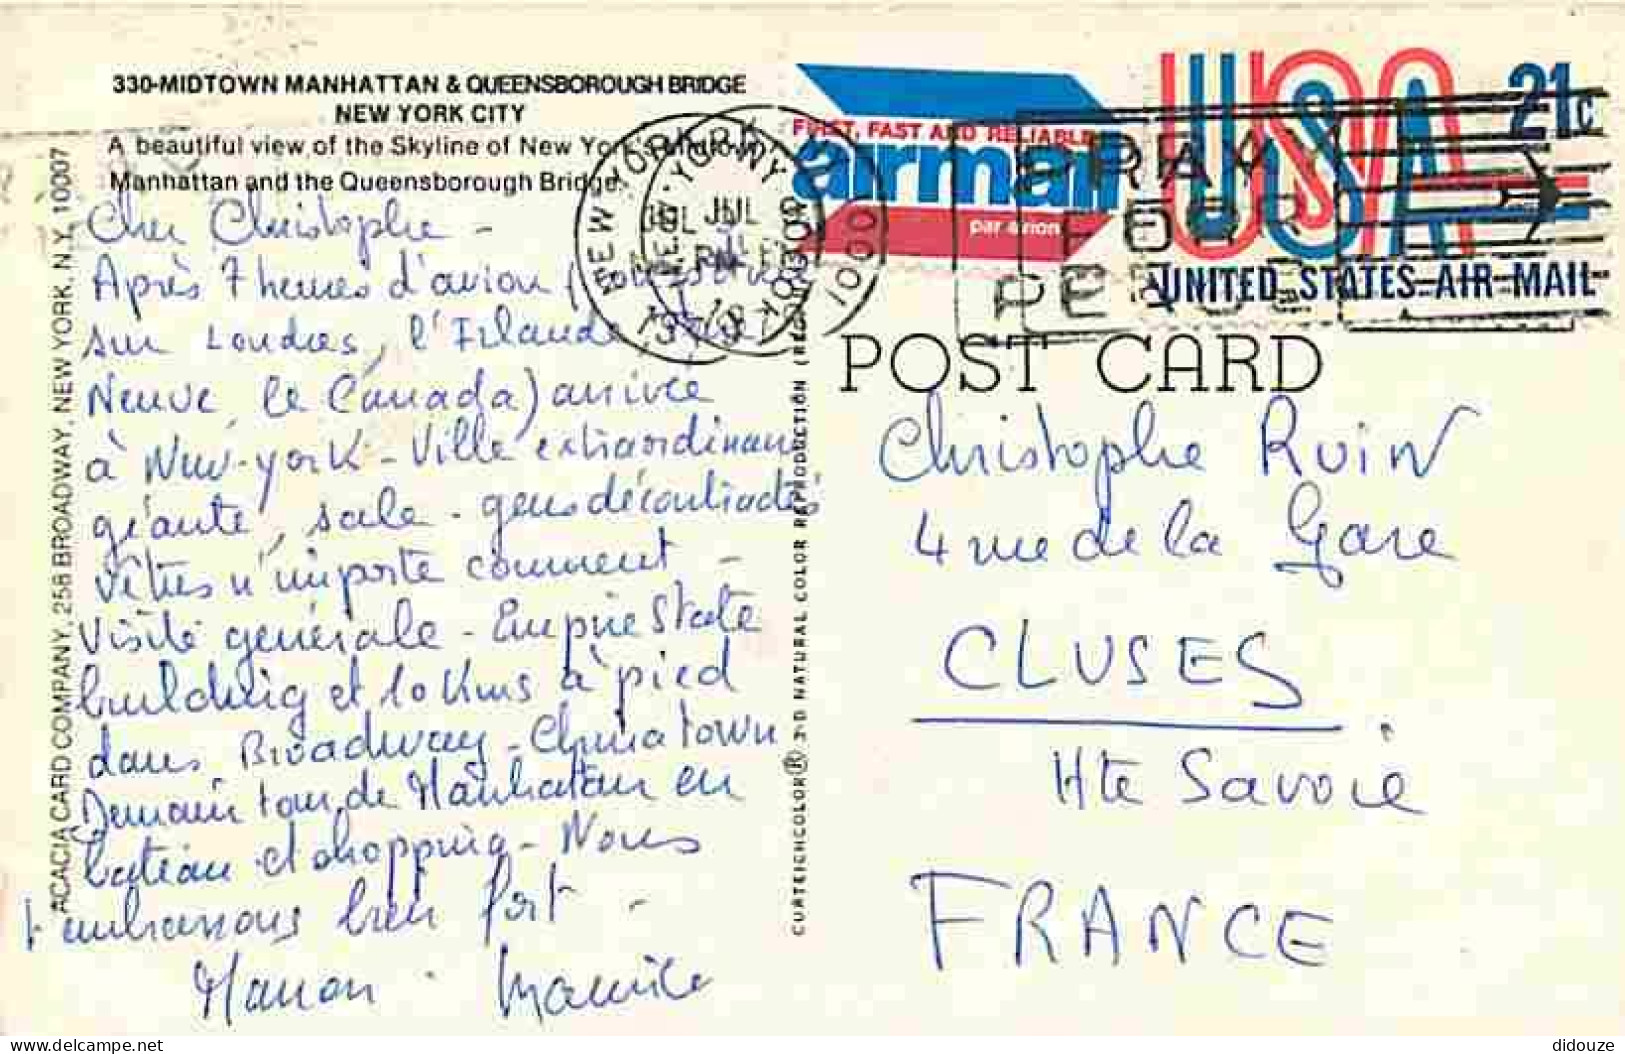 330-MIDTOWN MANHATTAN & QUEENSBOROUGH BRIDGE
NEW YORK CITY
A beautiful view of the Skyline of New York's Midtown
Manhattan and the Queensborough Bridge.
Cher Christophe -
Après 7 heures d'avion (
sur Londres, l'Irlande, Terre
Neuve, le Canada) arrivée
à New-york - Ville extraordinaire
géante, sale - gens décontractés
vêtus n'importe comment -
Visite générale - Empire State
building et 10 Kms à pied
dans Broadway - Chinatown
Demain tour de Manhatan en
bateau et shopping - Nous
t'embrassons bien fort -
Manon - Maurice
ACACIA CARD COMPANY, 258 BROADWAY, NEW YORK, N.Y. 10007
CURTEICHCOLOR® 3-D NATURAL COLOR REPRODUCTION
FIRST, FAST AND RELIABLE
airmail
par avion
NEW YORK, NY
JUL
PM
1000
PRAY
FOR
PEACE
USA
21c
UNITED STATES AIR MAIL
POST CARD
Christophe Ruin
4 rue de la Gare
CLUSES
Hte Savoie
FRANCE
delcampe.net
didouze